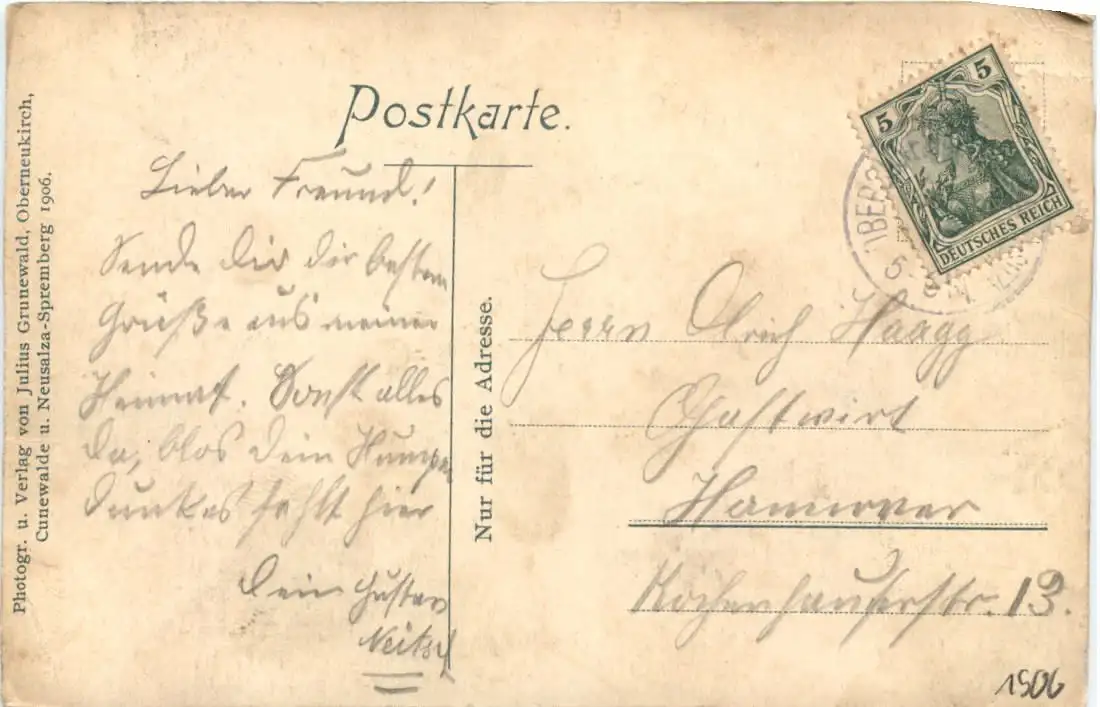 Photogr. u. Verlag von Julius Grunewald, Oberneukirch,
Cunewalde u. Neusalza-Spremberg 1906.
Postkarte.
Lieber Freund!
Sende dir die besten
Grüße aus meiner
Heimat. Sonst alles
da, blos dein
fehlt hier
Dein Gustav
Nur für die Adresse.
5
5
DEUTSCHES REICH
Herrn Olrich
Gastwirt
Hannover
13.
1906